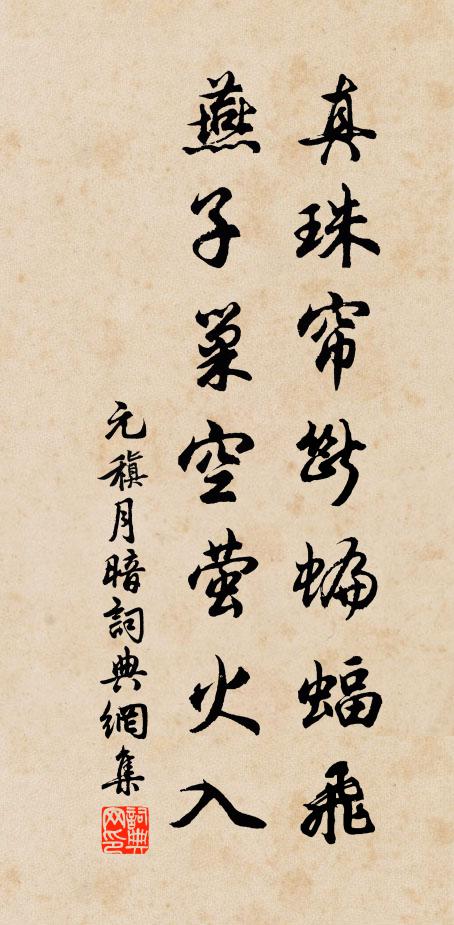 真珠帘断蝙蝠飞
燕子巢空萤火入
元稹月暗詞典網集
詞典网印